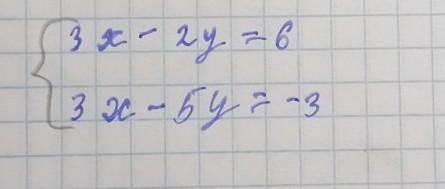 3x - 2y = 6
3x - 5y = -3